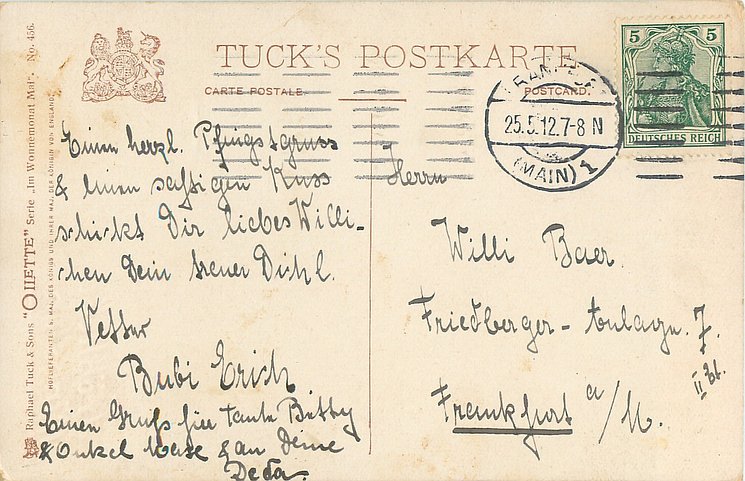 TUCK'S POSTKARTE
CARTE POSTALE
POSTCARD.
Raphael Tuck & Sons "OILETTE" Serie „Im Wonnemonat Mai". No. 456.
HOFLIEFERANTEN S. MAJ. DES KÖNIGS UND IHRER MAJ. DER KÖNIGIN VON ENGLAND.
FRANKFURT
25.5.12.7-8 N
(MAIN) 1
5 5
DEUTSCHES REICH
Einen herzl. Pfingstgruss
& einen saftigen Kuss
schickt Dir liebes Willi-
chen Dein treuer Dichl.
Vetter
Bubi Erich
Einen Gruß für tante Betty
& Onkel & an Deine
Deda.
Herrn
Willi Baer.
Friedberger-Anlage. 7.
II Et.
Frankfurt a/M.